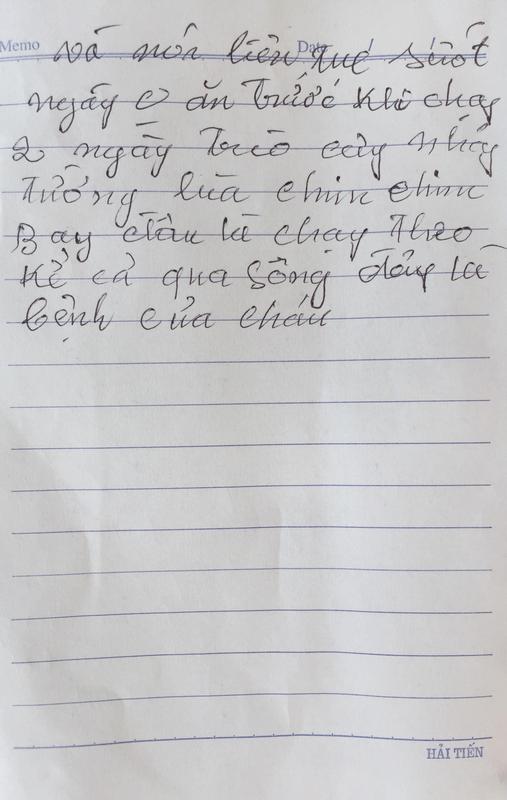 Memo Date
và nón liên tục suốt
ngày o ăn trước khi chạy
2 ngày trèo cây nhảy
tường lúa chim chim
Bay đâu là chạy theo
kể cả qua sông đấy là
bệnh của cháu
HẢI TIẾN